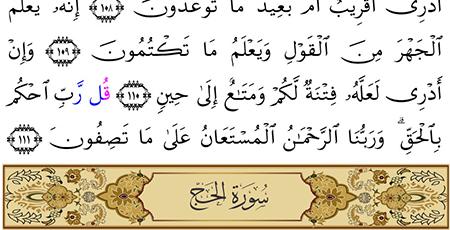 أَدْرِىٓ أَقَرِيبٌ أَم بَعِيدٌ مَّا تُوعَدُونَ ﴿١٠٨﴾ إِنَّهُۥ يَعْلَمُ
ٱلْجَهْرَ مِنَ ٱلْقَوْلِ وَيَعْلَمُ مَا تَكْتُمُونَ ﴿١٠٩﴾ وَإِنْ
أَدْرِى لَعَلَّهُۥ فِتْنَةٌ لَّكُمْ وَمَتَٰعٌ إِلَىٰ حِينٍ ﴿١١٠﴾ قُل رَّبِّ ٱحْكُم
بِٱلْحَقِّ ۗ وَرَبُّنَا ٱلرَّحْمَٰنُ ٱلْمُسْتَعَانُ عَلَىٰ مَا تَصِفُونَ ﴿١١١﴾
سُورَةُ الحَجِّ